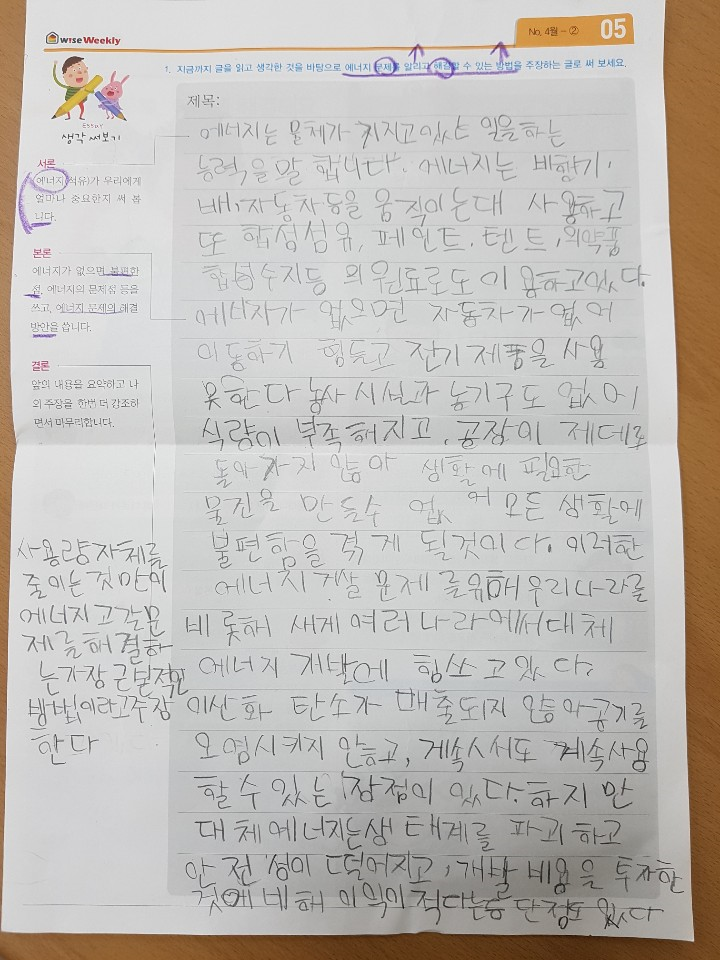 wise Weekly
No. 4월 - ②
05
1. 지금까지 글을 읽고 생각한 것을 바탕으로 에너지 문제를 알리고 해결할 수 있는 방법을 주장하는 글로 써 보세요.
ESSAY
생각 써보기
서론
에너지(석유)가 우리에게
얼마나 중요한지 써 봅
니다.
본론
에너지가 없으면 불편한
점, 에너지의 문제점 등을
쓰고, 에너지 문제의 해결
방안을 씁니다.
결론
앞의 내용을 요약하고 나
의 주장을 한번 더 강조하
면서 마무리합니다.
제목:
에너지는 물체가 가지고 있는 일을 하는
능력을 말 합니다. 에너지는 비행기,
배, 자동차등을 움직이는대 사용하고
또 합성섬유, 페인트, 텐트, 의약품
합성수지등 의 원료로도 이용하고있다.
에너지가 없으면 자동차가 없어
이동하기 힘들고 전기제품을 사용
못한다 농사 시설과 농기구도 없어
식량이 부족해지고, 공장이 제데로
돌아가지 않아 생활에 필요한
물진을 만들수 없어 모든 생활에
불편함을 겪게 될것이다. 이러한
에너지 문제를 우리나라를
비롯해 새계 여러나라에서 대체
에너지 개발에 힘쓰고있다.
이산화 탄소가 배출되지 않아 공기를
오염시키지 않고, 계속써도 계속사용
할 수 있는 장점이 있다. 하지만
대체에너지는 생태계를 파괴하고
안전성이 떨어지고, 개발 비용을 투자한
것에 비해 이익이 적다는 단점도 있다
사용량자체를
줄이는것만이
에너지고갈문
제를해결하
는가장근본적인
방법이라고주장
한다